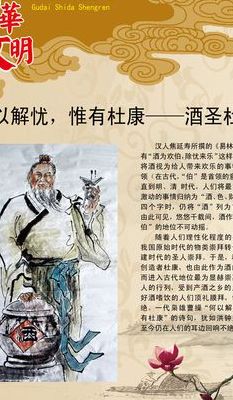 華
文明
Gudai Shida Shengren
以解忧，惟有杜康——酒圣杜
汉人焦延寿所撰的《易林
有“酒为欢伯，除忧来乐”这样
将酒视为给人带来欢乐的事物
领（在古代，“伯”是首领的意
直到明、清 时代，人们将最
激动的事情归纳为“酒、色、则
四个字时，仍将“酒”列为
由此可见，悠悠千载间，酒作
伯”的地位不可动摇。
随着人们理性化程度的
我国原始时代的物类崇拜转
建时代的圣人崇拜。于是，
创造者杜康，也由此作为酒
而进入古代地位最为显赫崇
人的行列，受到产酒之乡的
好酒嗜饮的人们顶礼膜拜，
绝，一代枭雄曹操“何以解
有杜康”的诗句，犹如洪钟
至今仍在人们的耳边回响不绝
酒